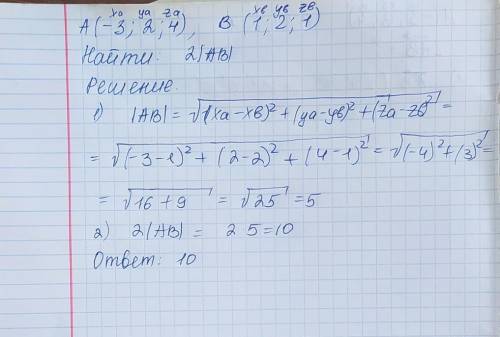 xa ya za xв yв zв
A (-3; 2; 4), B (1; 2; 1)
Найти: 2|AB|
Решение.
1) |AB| = √((xa-xв)² + (ya-yв)² + (za-zв)²) =
= √((-3-1)² + (2-2)² + (4-1)²) = √((-4)² + (3)²) =
= √(16+9) = √25 = 5
2) 2|AB| = 2 5 = 10
Ответ: 10